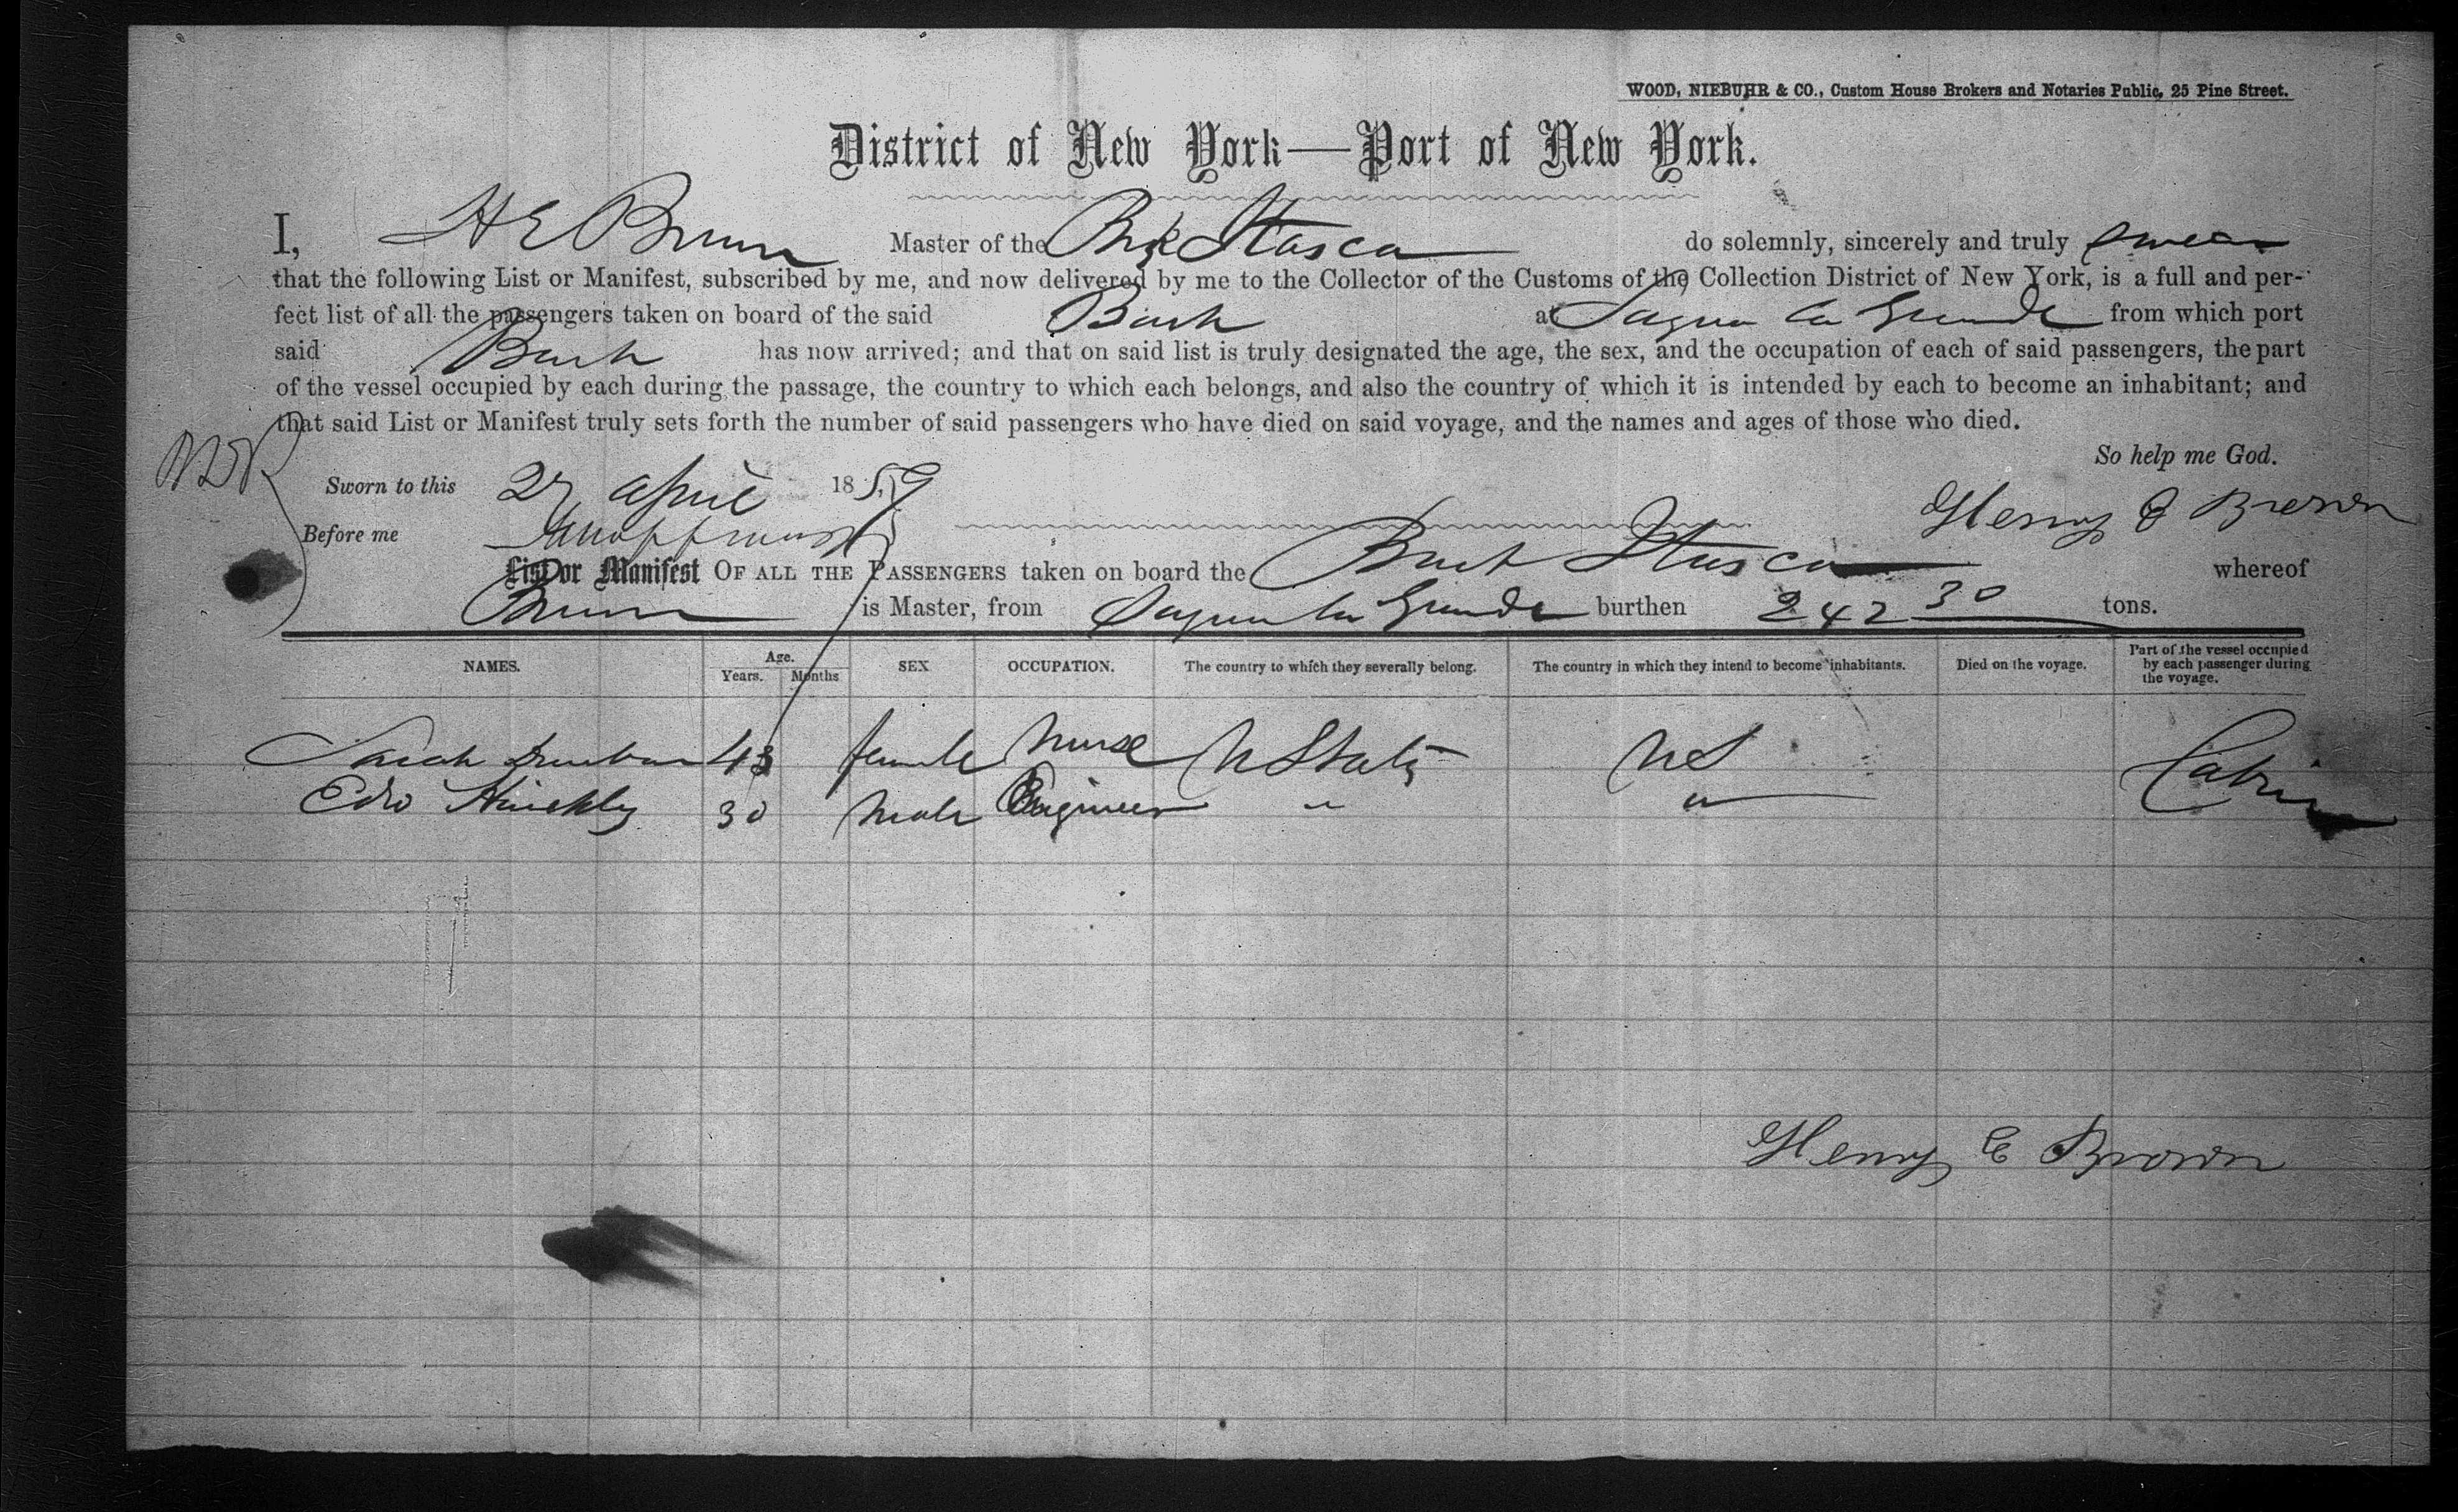 WOOD, NIEBUHR & CO., Custom House Brokers and Notaries Public, 25 Pine Street.
District of New York—Port of New York.
I, H E Brown Master of the Itasca do solemnly, sincerely and truly swear
that the following List or Manifest, subscribed by me, and now delivered by me to the Collector of the Customs of the Collection District of New York, is a full and per-
fect list of all the passengers taken on board of the said Bark at Sagua La Grande from which port
said Bark has now arrived; and that on said list is truly designated the age, the sex, and the occupation of each of said passengers, the part
of the vessel occupied by each during the passage, the country to which each belongs, and also the country of which it is intended by each to become an inhabitant; and
that said List or Manifest truly sets forth the number of said passengers who have died on said voyage, and the names and ages of those who died.
So help me God.
Sworn to this 27 April 1859
Henry E Brown
Before me
List or Manifest OF ALL THE PASSENGERS taken on board the Bark Itasca whereof
Brown is Master, from Sagua La Grande burthen 242 30 tons.
NAMES. Age. Years. Months SEX OCCUPATION. The country to which they severally belong. The country in which they intend to become inhabitants. Died on the voyage. Part of the vessel occupied by each passenger during the voyage.
Sarah 43 female Nurse U States U S Cabin
Edw Hinckley 30 Male Engineer " "
Henry E Brown